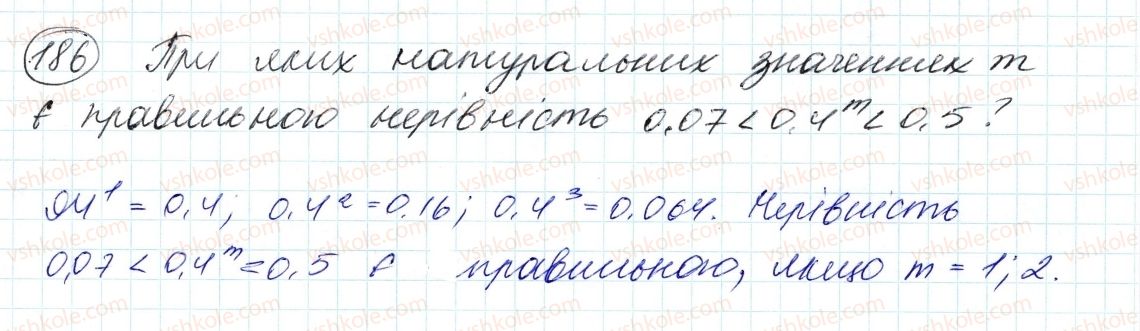 186 При яких натуральних значеннях m
є правильною нерівність 0,07 < 0,4^m < 0,5?
0,4^1 = 0,4; 0,4^2 = 0,16; 0,4^3 = 0,064. Нерівність
0,07 < 0,4^m < 0,5 є правильною, якщо m = 1; 2.